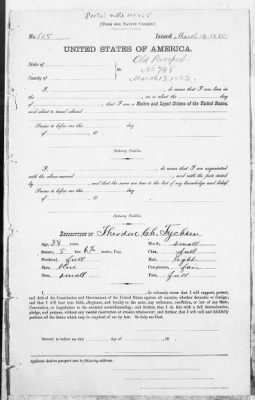 [FORM FOR NATIVE CITIZEN.]
No. 115 Issued March 14, 1885
UNITED STATES OF AMERICA.
Old Passport
State of
No 748
County of
March 13, 1883
I, do swear that I was born in
on or about the day
of , that I am a Native and Loyal Citizen of the United States,
and about to travel abroad
Sworn to before me this day
of , 18
Notary Public.
I, do swear that I am acquainted
with the above-named , and with the facts stated
by , and that the same are true to the best of my knowledge and belief.
Sworn to before me this day
of , 18
Notary Public.
DESCRIPTION OF Theodore Ch. Tychsen
Age, 38 years Mouth, small
Stature, 5 feet 6½ inches, Eng. Chin, full
Forehead, full Hair, light
Eyes, blue Complexion, fair
Nose, small Face, full
I, , do solemnly swear that I will support, protect,
and defend the Constitution and Government of the United States against all enemies, whether domestic or foreign;
and that I will bear true faith, allegiance, and loyalty to the same, any ordinance, resolution, or law of any State,
Convention, or Legislature to the contrary notwithstanding; and further, that I do this with a full determination,
pledge, and purpose, without any mental reservation or evasion whatsoever; and further, that I will well and faithfully
perform all the duties which may be required of me by law: So help me God.
Sworn to before me this day of , 18
Applicant desires passport sent to following address: